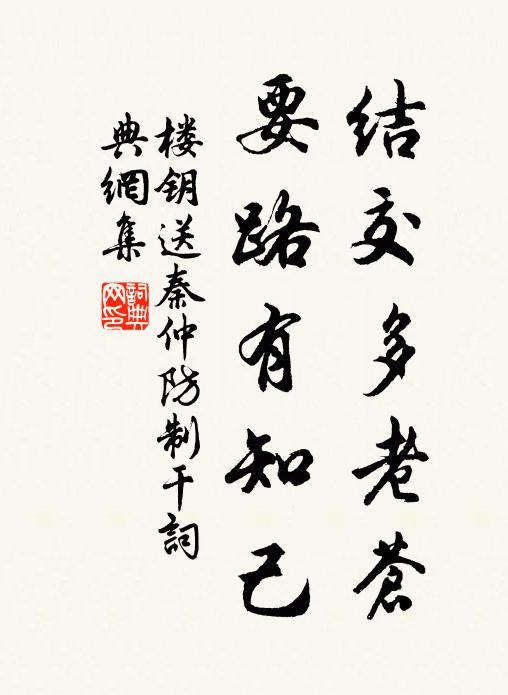 结交多老蒼
要路有知己
楼钥送秦仲防制干詞
典網集
詞典网印